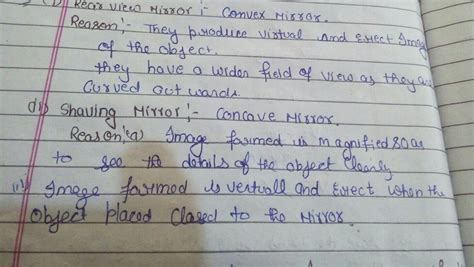 (i) Rear view Mirror :- Convex Mirror.
Reason :- They produce virtual and Erect Image
of the object.
they have a wider field of view as they are
curved outwards.
(ii) Shaving Mirror :- Concave Mirror.
Reason :- (i) Image formed is magnified so as
to see the details of the object Clearly
ii) Image formed is vertuall and Erect when the
Object placed Closed to the Mirror.